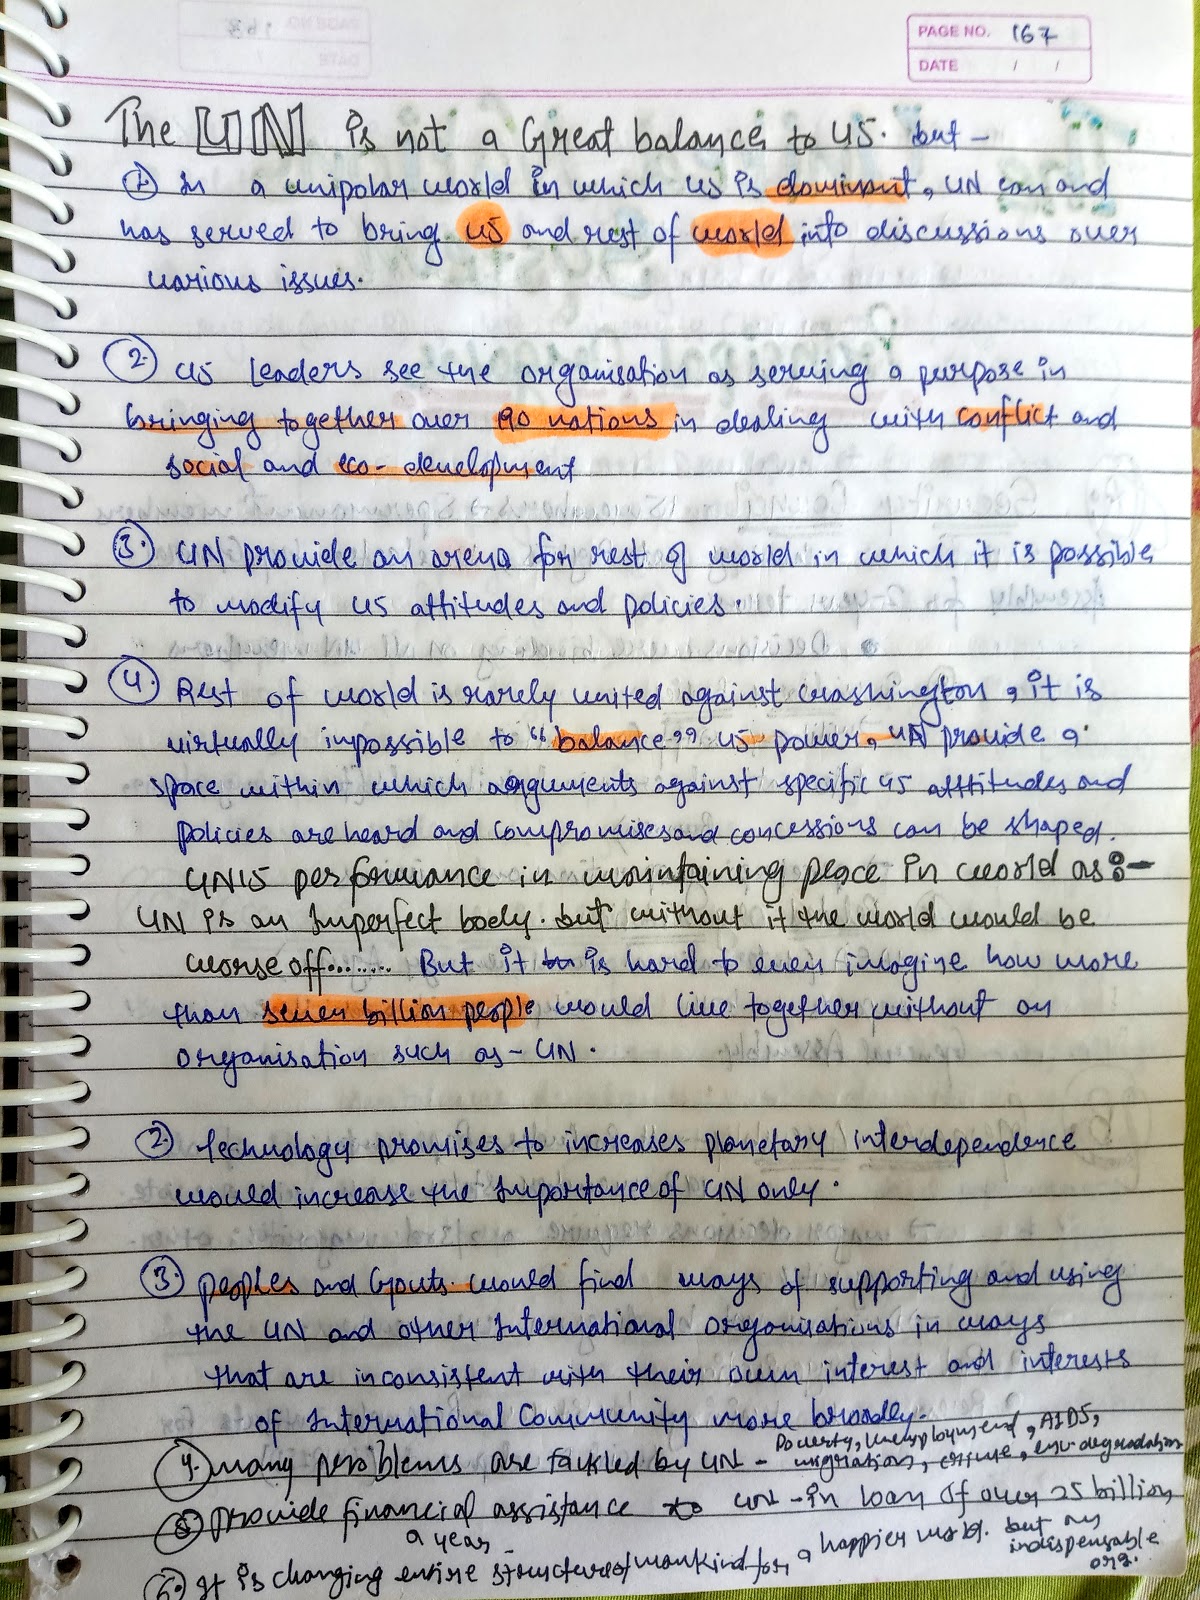 PAGE NO. 167
DATE / /
The UN is not a Great balance to US. but -
① In a unipolar world in which US is dominant, UN can and
has served to bring US and rest of world into discussions over
various issues.
②. US leaders see the organisation as serving a purpose in
bringing together over 190 nations in dealing with conflict and
social and eco-development
③. UN provide an arena for rest of world in which it is possible
to modify US attitudes and policies.
④. Rest of world is rarely united against washington, it is
virtually impossible to "balance" US power, UN provide a
space within which arguments against specific US attitudes and
policies are heard and compromises and concessions can be shaped.
UN's performance in maintaining peace in world as:-
UN is an Imperfect body. but without it the world would be
worse off......... But it is hard to even imagine how more
than seven billion people would live together without an
organisation such as - UN.
②. Technology promises to increases planetary interdependence
would increase the Importance of UN only.
③. peoples and Govts. would find ways of supporting and using
the UN and other International organisations in ways
that are inconsistent with their own interest and interests
of International Community more broadly.
④. many problems are tackled by UN - Poverty, Unemployment, AIDS,
migration, crime, env. degradation
⑤ provide financial assistance to UN - in loan of over 25 billion
a year -
⑥. It is changing entire structure of mankind for a happier world. but an
indispensable
org.